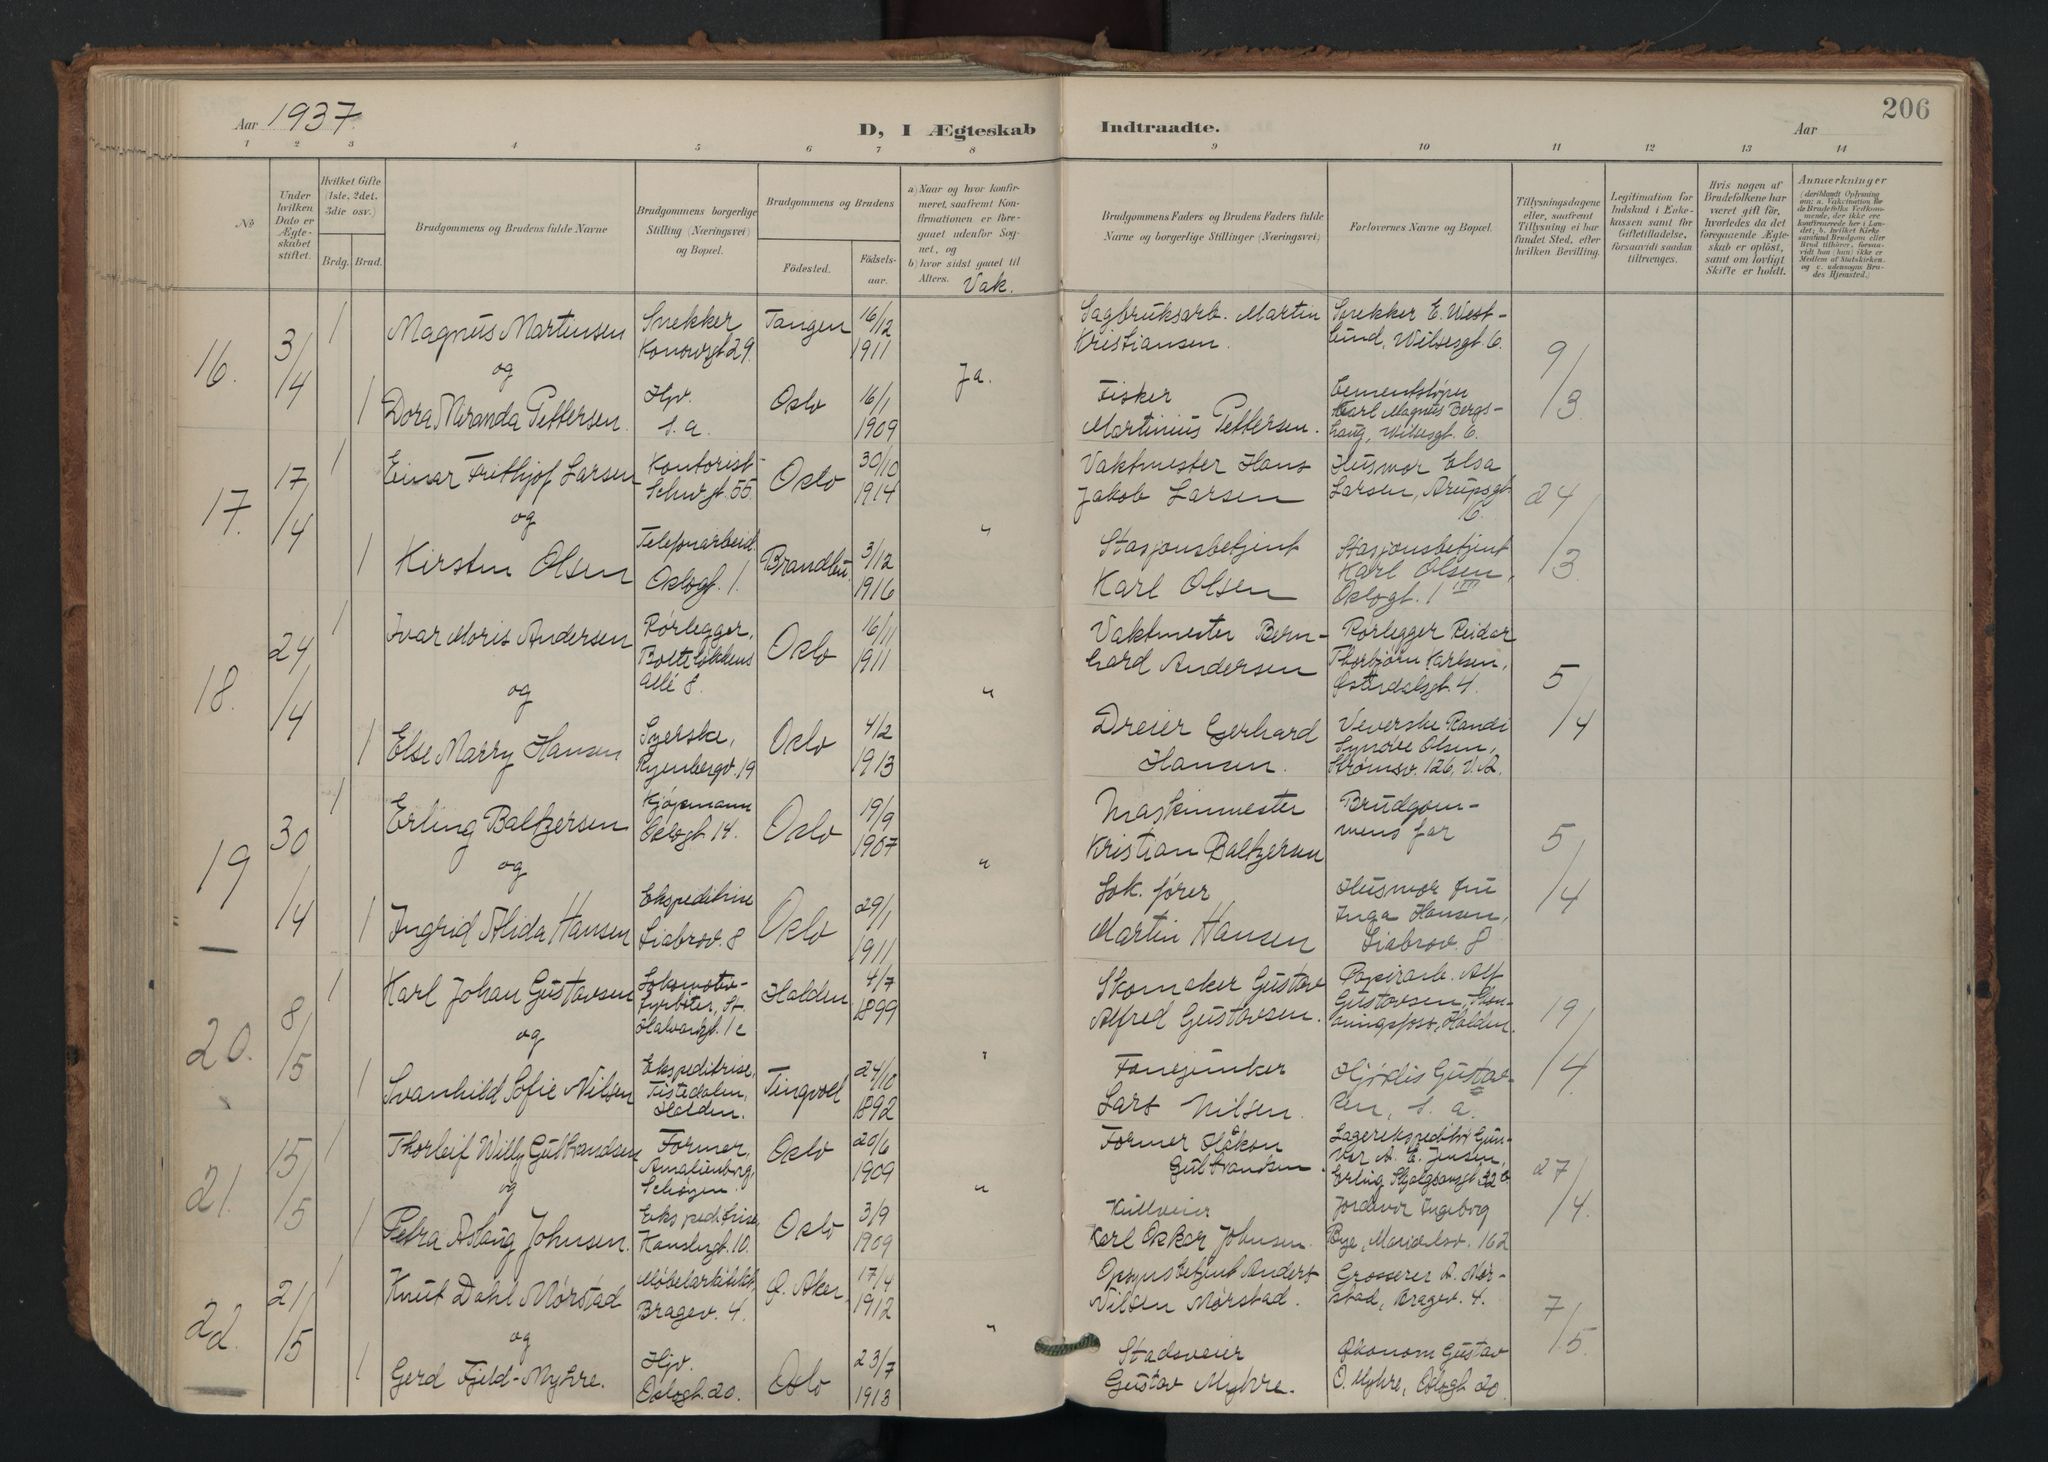 206
Aar 1937.
D, I Ægteskab
Indtraadte.
Aar
1 2 3 4 5 6 7 8 9 10 11 12 13 14
No
Under hvilken Dato er Ægteskabet stiftet.
Hvilket Gifte (1ste, 2det, 3die osv.)
Brdg. Brud.
Brudgommens og Brudens fulde Navne
Brudgommens borgerlige Stilling (Næringsvei) og Bopæl.
Brudgommens og Brudens
Födested.
Födselsaar.
a) Naar og hvor konfirmeret, saafremt Konfirmationen er foregaaet udenfor Sognet, og
b) hvor sidst gaaet til Alters.
Vak.
Brudgommens Faders og Brudens Faders fulde Navne og borgerlige Stillinger (Næringsvei)
Forlovernes Navne og Bopæl.
Tillysningsdagene eller, saafremt Tillysning ei har fundet Sted, efter hvilken Bevilling.
Legitimation for Indskud i Enkekassen samt for Giftetilladelse, forsaavidt saadan tiltrænges.
Hvis nogen af Brudefolkene har været gift för, hvorledes da det foregaaende Ægteskab er oplöst, samt om lovligt Skifte er holdt.
Anmærkninger
16. 3/4 1 Magnus Martinsen
Snekker Konowsgt 29.
Tangen 16/12 1911
Sagbruksarb. Martin Kristiansen.
Snekker E. Westlund, Wilsesgt. 6.
og
Ja.
9/3
1 Dora Miranda Pettersen.
Hjv. s. a.
Oslo 16/1 1909
Fisker Martinius Pettersen.
Karl Magnus Bergshaug, Wilsesgt. 6.
17. 17/4 1 Einar Frithjof Larsen
Kontorist Schwgt. 55
Oslo 30/10 1914
Vaktmester Hans Jakob Larsen
Husmor Elsa Larsen, Arupsgt. 16.
og
"
24/3
1 Kirsten Olsen
Telefonarbeid. Oslogt. 1.
Brandbu 3/12 1916
Stasjonsbetjent Karl Olsen
Stasjonsbetjent Karl Olsen, Oslogt. 1 III
18. 24/4 1 Ivar Moris Andersen
Rørlegger, Bolteløkkens allé 8.
Oslo 16/11 1911
Vaktmester Bernhard Andersen
Rørlegger Reidar Thorbjørn Karlsen, Østerdalsgt. 4.
og
"
5/4
1 Else Marry Hansen
Syerske, Ryenbergv. 19
Oslo 4/2 1913
Dreier Gerhard Hansen.
Veverske Randi Synøve Olsen, Strømsv. 126, V. A.
19 30/4 1 Erling Baltzersen
Kjøpmann Oslogt 14.
Oslo 19/9 1907
Maskinmester Kristian Baltzersen
Brudgommens far
og
"
5/4
1 Ingrid Alida Hansen
Ekspeditrise Liabrov. 8
Oslo 29/1 1911
Lok. fører Martin Hansen
Husmor fru Inga Hansen, Liabrov. 8
20. 8/5 1 Karl Johan Gustavsen
Lokomotivfyrbøter, St. Halvardsgt. 1c
Halden 4/7 1899
Skomaker Gustav Alfred Gustavsen.
Papirarb. Alf Gustavsen, Skonningsfoss, Halden.
og
"
19/4
1 Svanhild Sofie Nilsen
Ekspeditrise, Tistedalen, Halden.
Tingvoll 24/10 1892
Fanejunker Lars Nilsen.
Hjørdis Gustavsen, s. a.
21. 15/5 1 Thorleif Willy Gulbrandsen
Former, Amalienborg, Schøyen.
Oslo 20/6 1909
Former Håkon Gulbrandsen
Lagerekspeditør Gunvar A. E. Jensen, Erling Skjalgsonsgt 32
og
"
27/4.
1 Petra Aslaug Johnsen.
Ekspeditrise, Kanslergt. 10.
Oslo 3/9 1909
Karl Oskar Johnsen.
Jordmor Ingeborg Bye, Maridalsv. 162
22. 21/5 1 Knut Dahl Mørstad
Møbelarkitekt, Bragev. 4.
Ø. Aker. 17/4 1912
Opsynsbetjent Anders Nilsen Mørstad.
Grosserer A. Mørstad, Bragev. 4.
og
"
7/5.
1 Gerd Fjeld-Myhre.
Hjv. Oslogt. 20.
Oslo 23/7 1913
Stadsveier Gustav Myhre.
Økonom Gustav O. Myhre, Oslogt 20